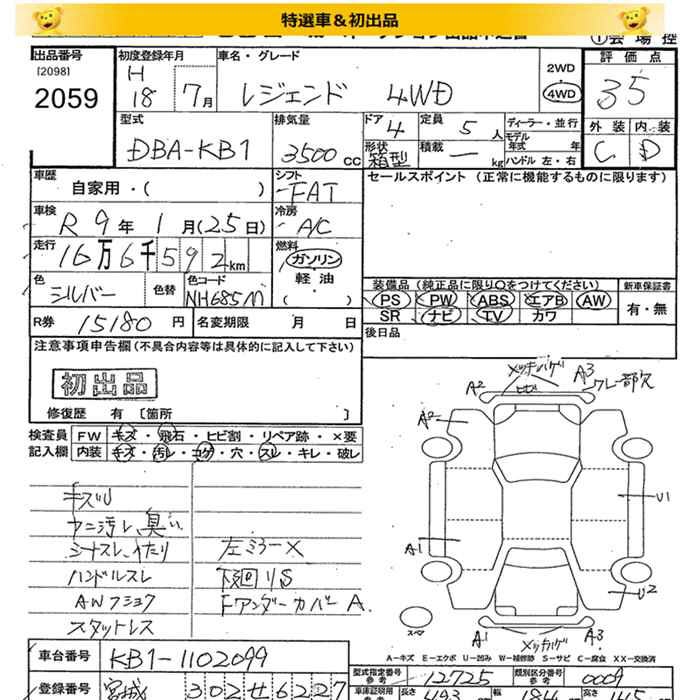 特選車＆初出品
出品番号
[2098]
2059
初度登録年月
H
18 7月
車名・グレード
レジェンド 4WD
2WD
4WD
評価点
35
外装 内装
C D
型式
DBA-KB1
排気量
3500cc
ドア
4
形状
箱型
定員
5人
積載
ー kg
ディーラー・並行
モデル
年式 年
ハンドル 左・右
車歴
自家用・( )
シフト
FAT
車検
R9年1月(25日)
冷房
A/C
走行
16万6千592km
燃料
ガソリン
軽油
( )
色
シルバー
色替
色コード
NH685M
R券 15180円
名変期限 月 日
セールスポイント (正常に機能するものに限ります)
装備品 (純正品に限り○をつけてください)
PS PW ABS エアB AW
SR ナビ TV カワ
新車保証書
有・無
後日品
注意事項申告欄(不具合内容等は具体的に記入して下さい)
初出品
修復歴 有 [箇所 ]
検査員
記入欄
FW キズ・飛石・ヒビ割・リペア跡・×要
内装 キズ・汚レ・コゲ・穴・スレ・キレ・破レ
キズU
ヤニ汚レ、臭い
シートスレ、イたり
ハンドルスレ
AWフショク
スタットレス
左ミラーX
下廻りS
FアンダーカバーA
メッキハゲ
ヒビ
A2
A3
ワレ一部欠
A2
U1
A1
U2
スマ
A1
メッキハゲ
A3
A-キズ E-エクボ U-凹み W-補修跡 S-サビ C-腐食 XX-交換済
車台番号 KB1-1102099
登録番号 宮城 302せ6227
型式指定番号
参考
12725
類別区分番号
参考
0009
車庫証明用
長さ 493 cm 幅 184 cm 高さ 145